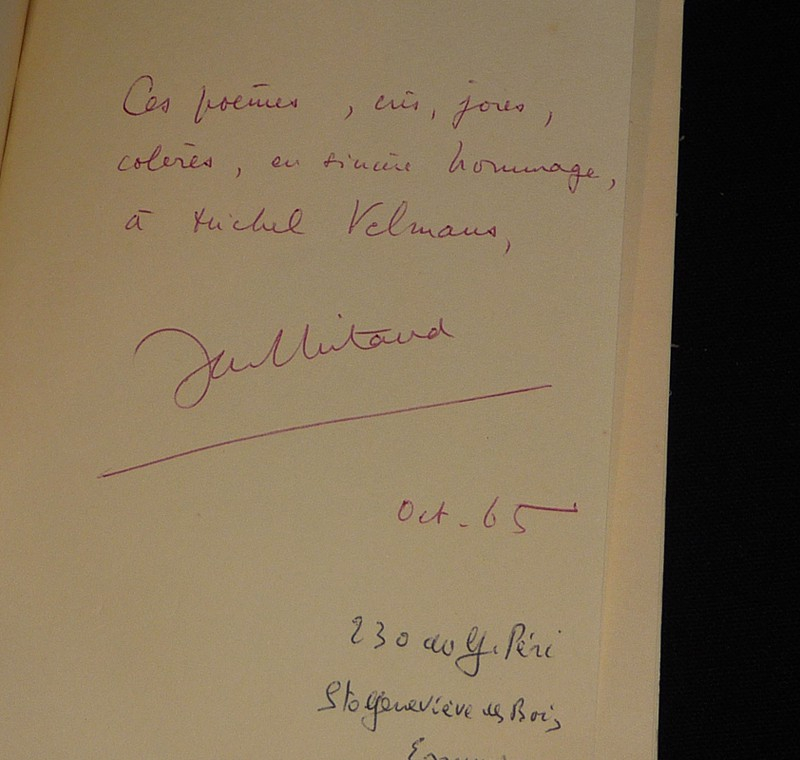 Ces poèmes, cris, joies,
colères, en sincère hommage,
à Michel Velmans,
Oct. 65
230 av G. Péri
Ste Geneviève des Bois